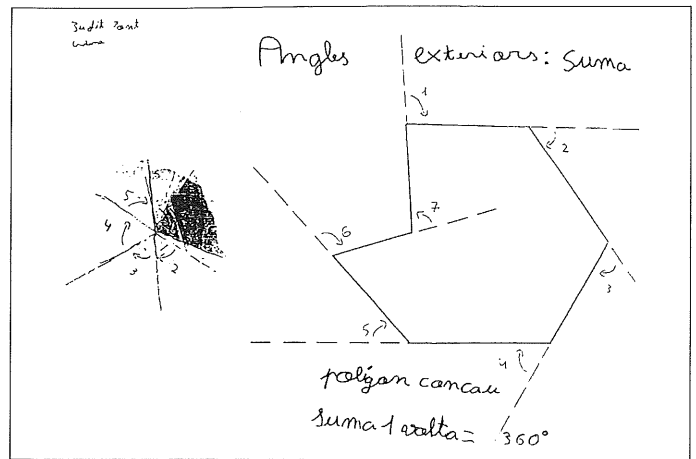 Angles exteriors: Suma
1
2
3
4
5
6
7
5
4
3
2
polígon concau
suma 1 volta = 360°